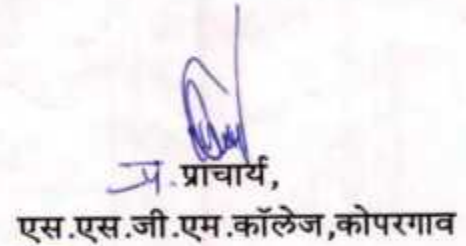 प्र. प्राचार्य,
एस.एस.जी.एम.कॉलेज,कोपरगाव